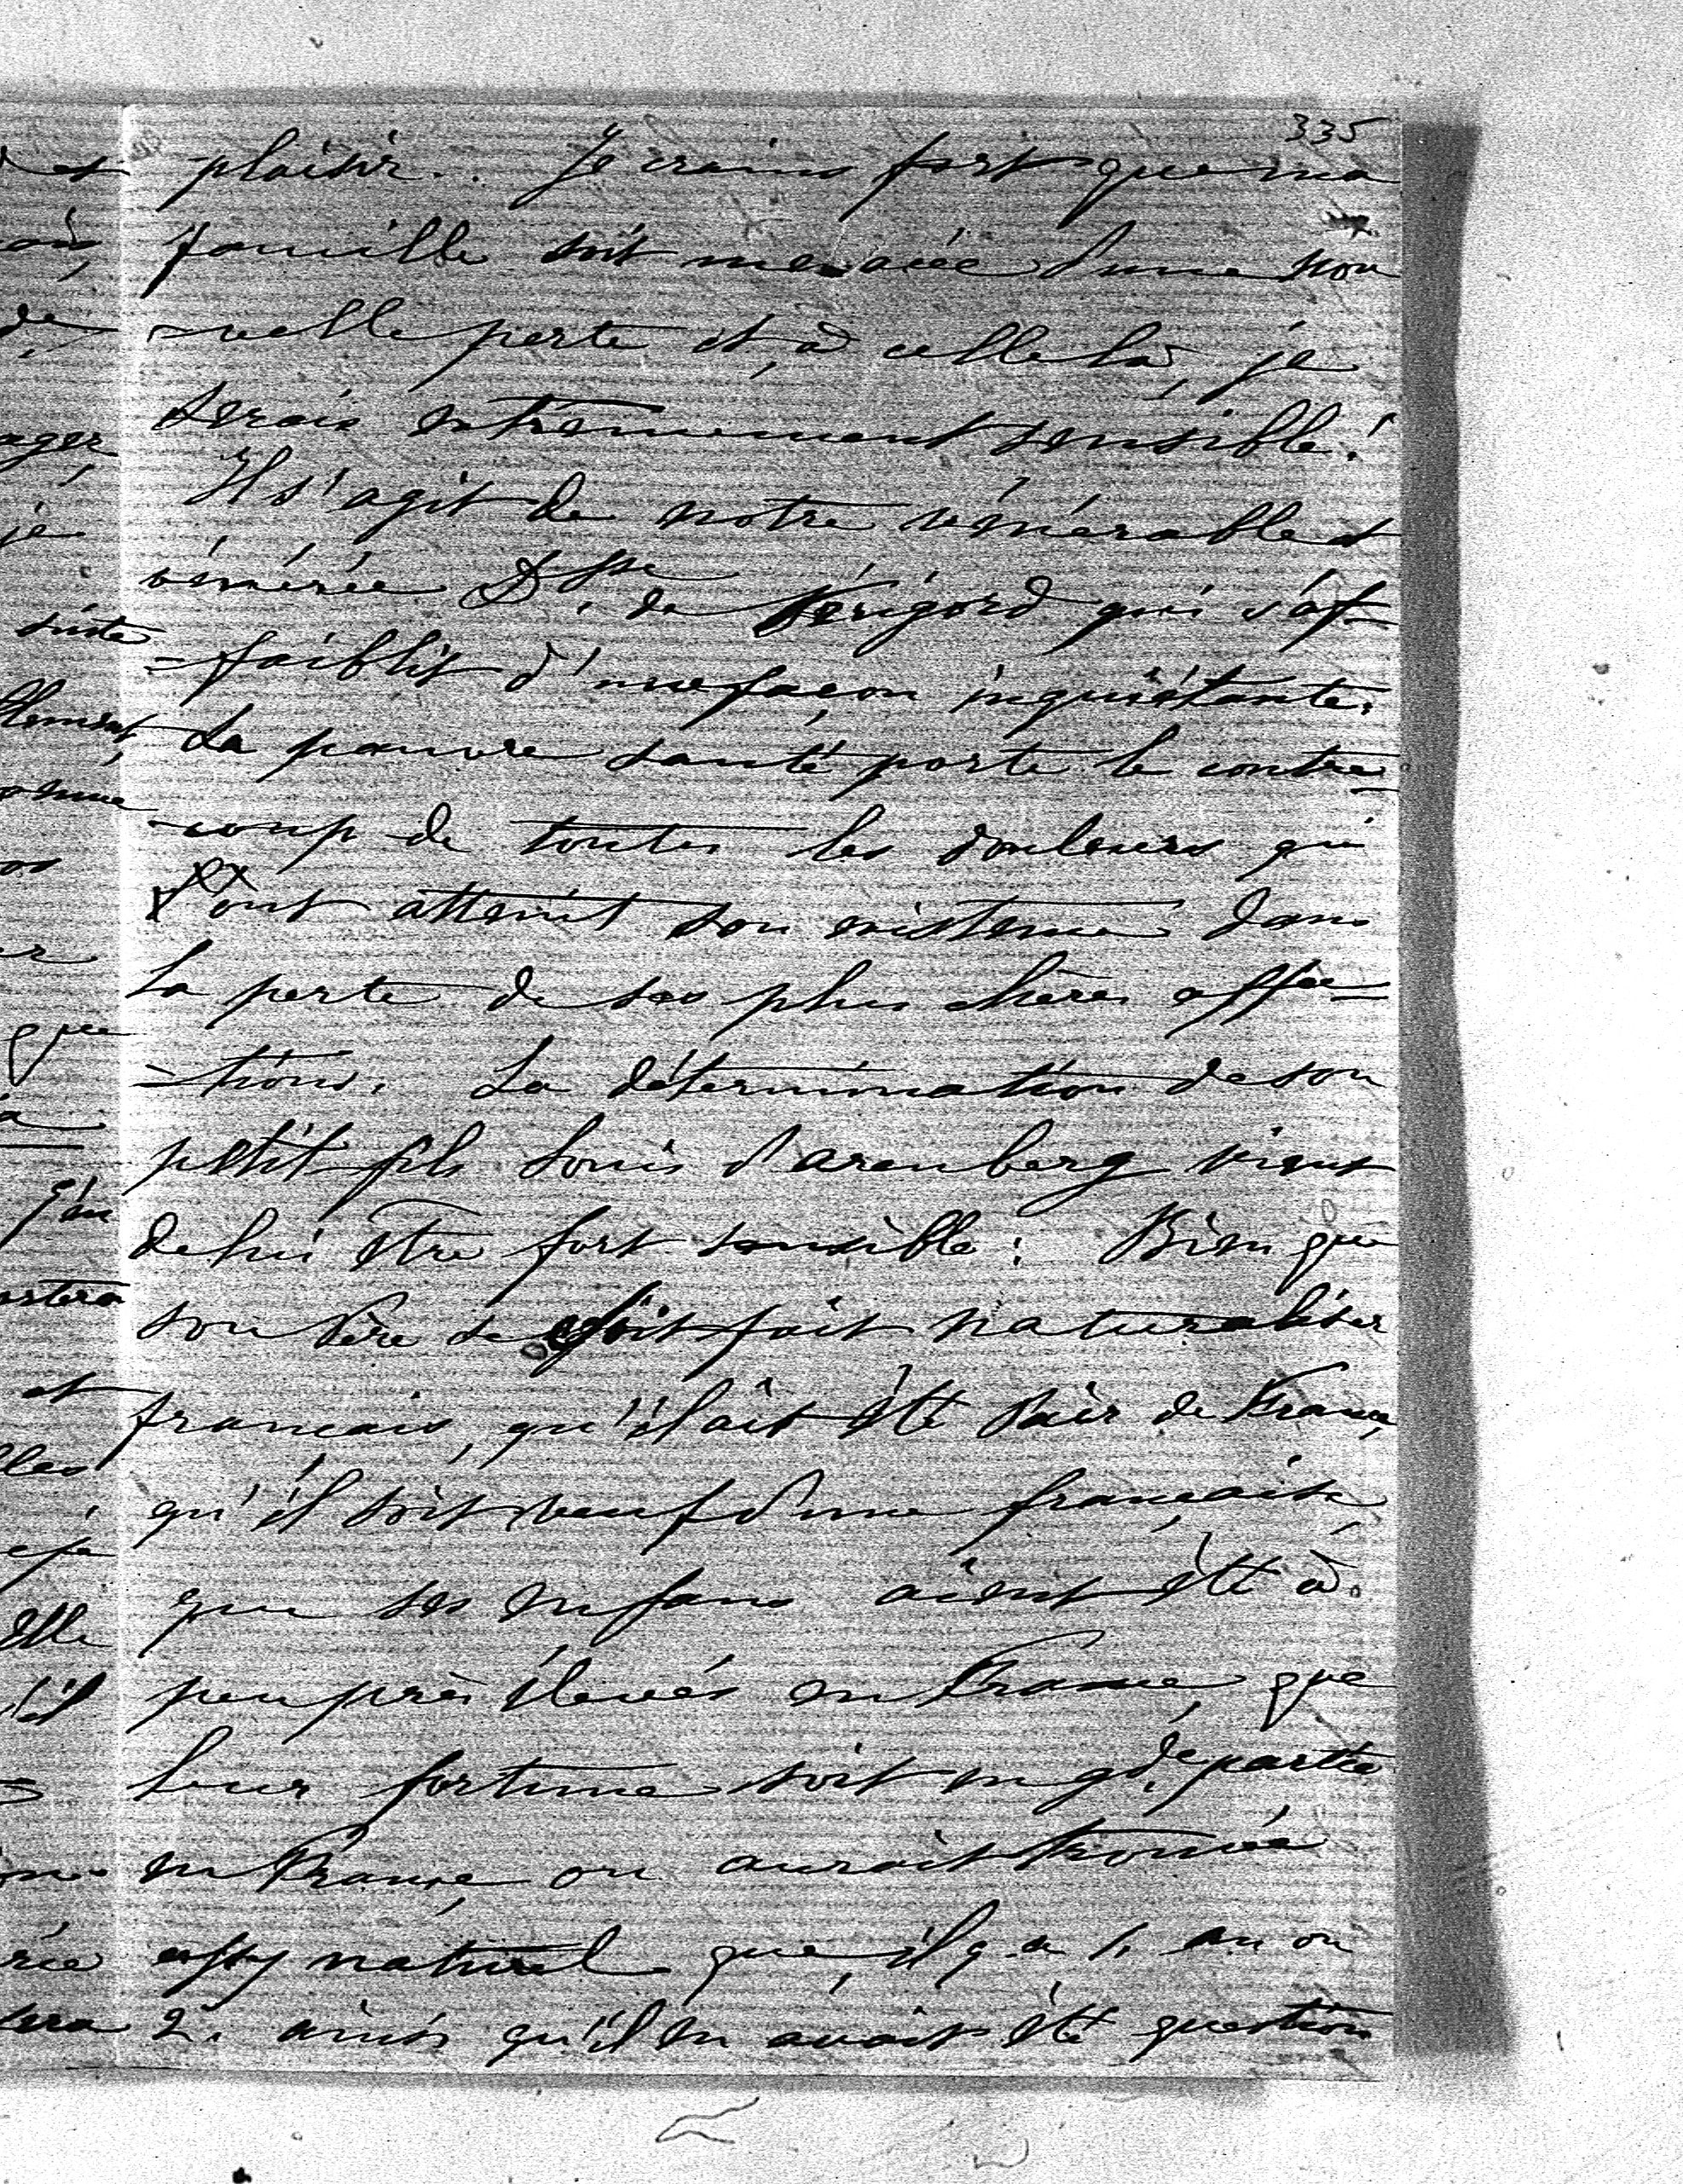 335
plaisir.. Je crains fort que ma
famille soit menacée d'une nou
-velle perte et, à celle là, je
serais extrêmement sensible!
Il s'agit de notre vénérable et
vénérée Dsse. de Périgord qui s'af-
-faiblit d'une façon inquiétante.
Sa pauvre santé porte le contre-
-coup de toutes les douleurs qui
ont atteint son existence dans
la perte de ses plus chères affec-
-tions. La détermination de son
petit-fils Louis d'arenberg vient
de lui être fort sensible: Bien que
son Père se soit fait naturaliser
français, qu'il ait été Pair de France,
qu'il soit veuf d'une française,
que ses enfans aient été à
peu près élevés en France, que
leur fortune soit en gde. partie
en France, on aurait trouvé
assez naturel que, il y a 1. an ou
2. ainsi qu'il en avait été question